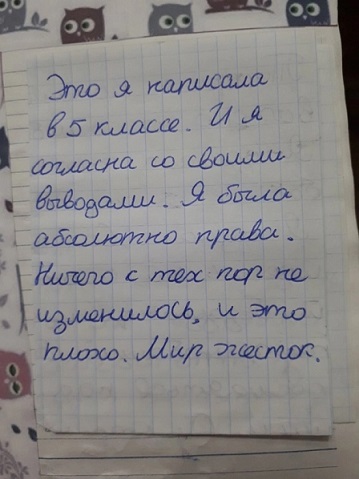 Это я написала
в 5 классе. И я
согласна со своими
выводами. Я была
абсолютно права.
Ничего с тех пор не
изменилось, и это
плохо. Мир жесток.